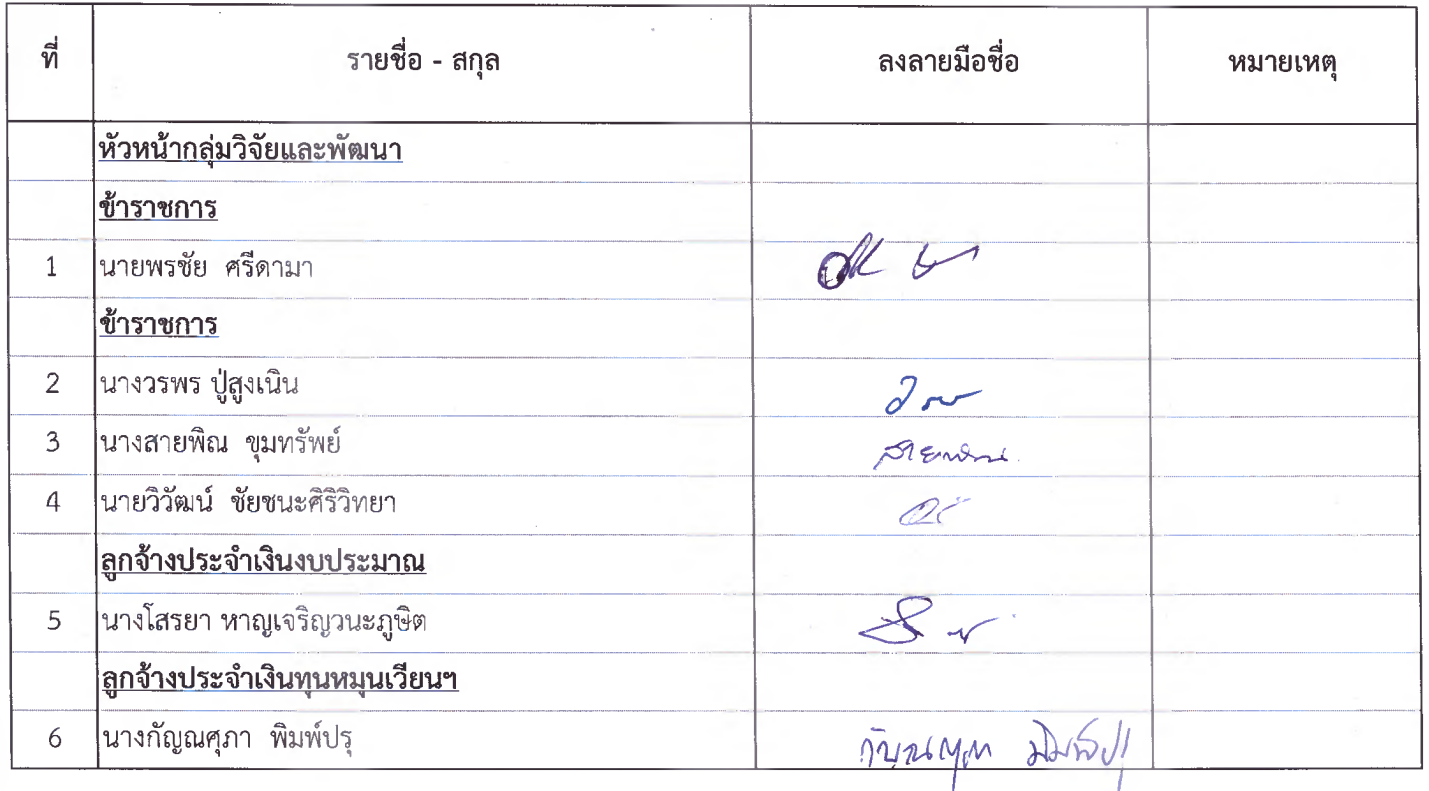 ที่ รายชื่อ - สกุล ลงลายมือชื่อ หมายเหตุ
หัวหน้ากลุ่มวิจัยและพัฒนา
ข้าราชการ
1 นายพรชัย ศรีดามา
ข้าราชการ
2 นางวรพร ปู่สูงเนิน
3 นางสายพิณ ขุมทรัพย์ สายพิณ
4 นายวิวัฒน์ ชัยชนะศิริวิทยา
ลูกจ้างประจำเงินงบประมาณ
5 นางโสรยา หาญเจริญวนะภูษิต
ลูกจ้างประจำเงินทุนหมุนเวียนฯ
6 นางกัญณศุภา พิมพ์ปรุ กัญณศุภา พิมพ์ปรุ